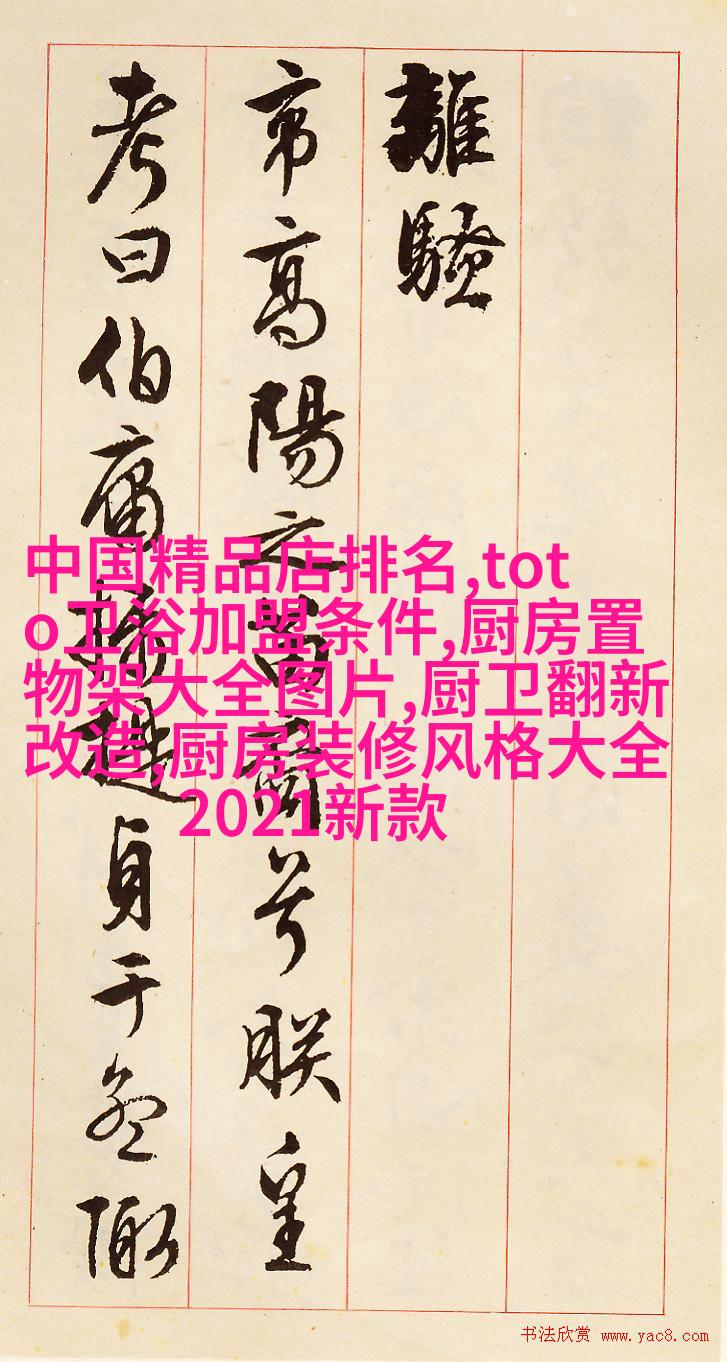 離騷
帝高陽之苗裔兮朕皇
考曰伯庸攝提貞于孟陬
中国精品店排名,tot
o卫浴加盟条件,厨房置
物架大全图片,厨卫翻新
改造,厨房装修风格大全
2021新款
书法欣赏 www.yac8.com